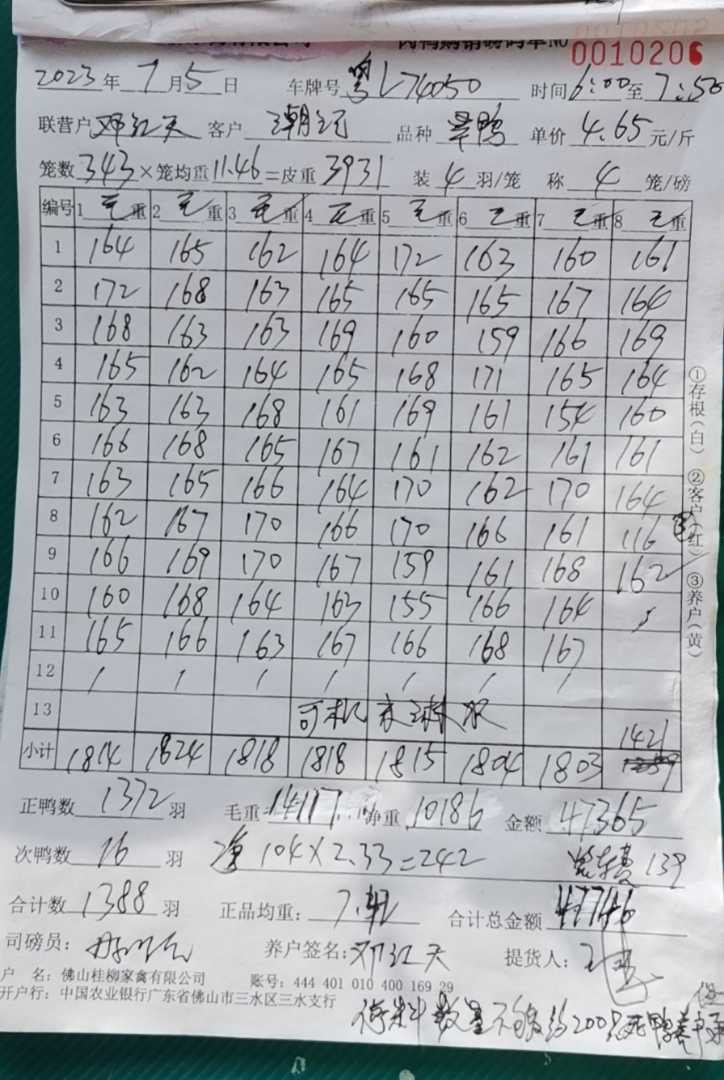 肉鸭购销磅码单No 0010206
2023年7月5日 车牌号 粤L74050 时间6:00至7:50
联营户 邓红天 客户 品种 旱鸭 单价 4.65 元/斤
笼数343×笼均重11.46=皮重3931 装4羽/笼 称4笼/磅
编号 1毛重 2毛重 3毛重 4毛重 5毛重 6毛重 7毛重 8毛重
1 164 165 162 164 172 163 160 161
2 172 168 163 165 165 165 167 164
3 168 163 163 169 160 159 166 169
4 165 162 164 165 168 171 165 164
5 163 163 168 161 169 161 154 160
6 166 168 165 167 161 162 161 161
7 163 165 166 164 170 162 170 164
8 162 167 170 166 170 166 161 116
9 166 169 170 167 159 161 168 162
10 160 168 164 163 155 166 164
11 165 166 163 167 166 168 167
12
13 司机
1421
小计 1814 1824 1818 1818 1815 1804 1803
正鸭数 1372 羽 毛重 14117 净重 10186 金额 47365
次鸭数 16 羽 净 104×2.33=242 139
合计数 1388 羽 正品均重: 7.42 合计总金额 47746
司磅员: 养户签名: 邓红天 提货人:
户 名: 佛山桂柳家禽有限公司 账号: 444 401 010 400 169 29
开户行: 中国农业银行广东省佛山市三水区三水支行
数量不够约200只死鸭养户
①存根(白) ②客户(红) ③养户(黄)